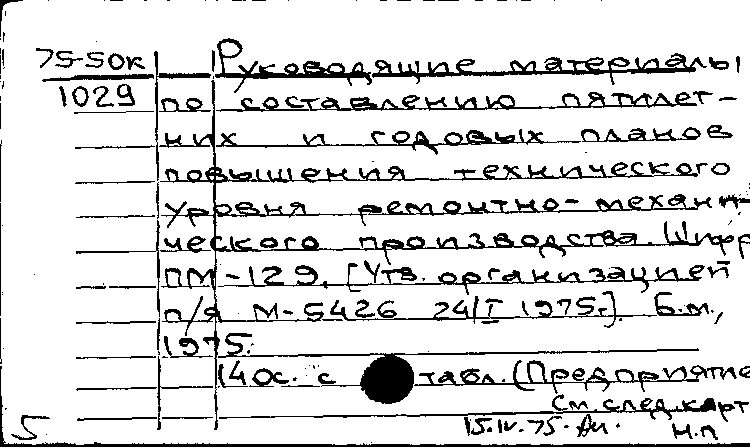 75-50к Руководящие материалы
1029 по составлению пятилет-
них и годовых планов
повышения технического
уровня ремонтно-механи-
ческого производства. Шифр
ПМ-129. [Утв. организацией
п/я М-5426 24/I 1975г.]. Б.м.,
1975.
140с. с табл. (Предприятие
См. след. карт
15.IV.75. н.п
5